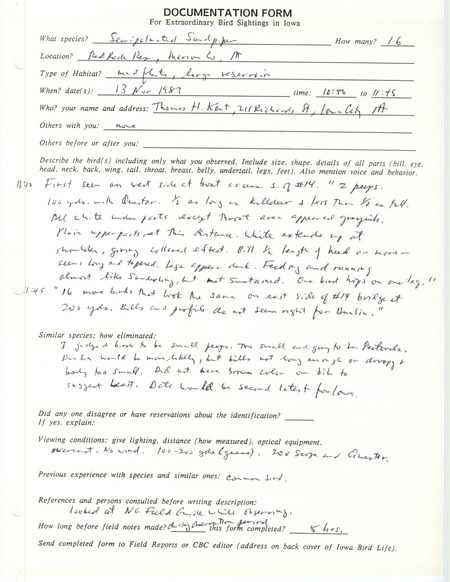 DOCUMENTATION FORM
For Extraordinary Bird Sightings in Iowa
What species? Semipalmated Sandpiper How many? 16
Location? Red Rock Res, Marion Co, IA
Type of Habitat? mudflats, large reservoir
When? date(s): 13 Nov 1987 time: to 11:45
Who? your name and address: Thomas H. Kent, 211 Richards St, Iowa City IA
Others with you: none
Others before or after you:
Describe the bird(s) including only what you observed. Include size, shape, details of all parts (bill, eye,
head, neck, back, wing, tail, throat, breast, belly, undertail, legs, feet). Also mention voice and behavior.
First seen on west side at boat access s. of #14. "2 peeps.
100 yds with Questar. 1/2 as long as killdeer & less than 1/2 as tall.
All white under parts except throat area appeared grayish.
Plain upperparts at this distance. White extends up at
shoulder, giving collared effect. Bill 1/2 length of head or more —
seems long and tapered. Legs appear dark. Feeding and running
almost like Sanderling, but not sustained. One bird hops on one leg."
11:45 "16 more birds that look the same on east side of #14 bridge at
200 yds. Bills and profile do not seem right for Dunlin."
Similar species; how eliminated:
I judged birds to be small peeps. Too small and gray to be Pectorals.
Dunlin would be more likely, but bills not long enough or droopy &
body too small. Did not have brown color or bib to
suggest Least. Date would be second latest for Iowa.
Did any one disagree or have reservations about the identification?
If yes, explain:
Viewing conditions: give lighting, distance (how measured), optical equipment.
overcast. No wind. 100-200 yds (guess). 20x scope and Questar.
Previous experience with species and similar ones: common bird.
References and persons consulted before writing description:
looked at NG Field Guide while observing.
How long before field notes made? during observation period this form completed? 8 hrs.
Send completed form to Field Reports or CBC editor (address on back cover of Iowa Bird Life).